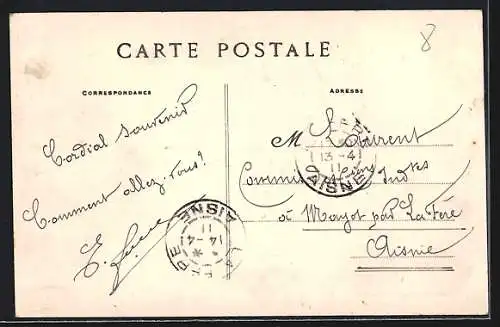 8
CARTE POSTALE
CORRESPONDANCE
ADRESSE
Cordial souvenir
Comment allez-vous ?
E.
M Laurent
Commis Ind^tes
à Mayot par La Fère
Aisne
13 -4
11
AISNE
AISNE
14-4
11